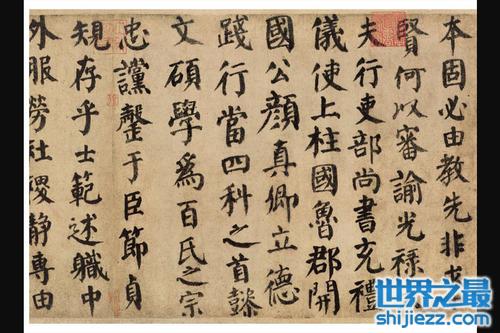 本固必由教先非
賢何以審諭光祿
夫行吏部尚書充禮
儀使上柱國魯郡開
國公顏真卿立德
踐行當四科之首懿
文碩學爲百氏之宗
忠讜罄于臣節貞
規存乎士範述職中
外服勞社稷靜專由
世界之最
shijiezz.com